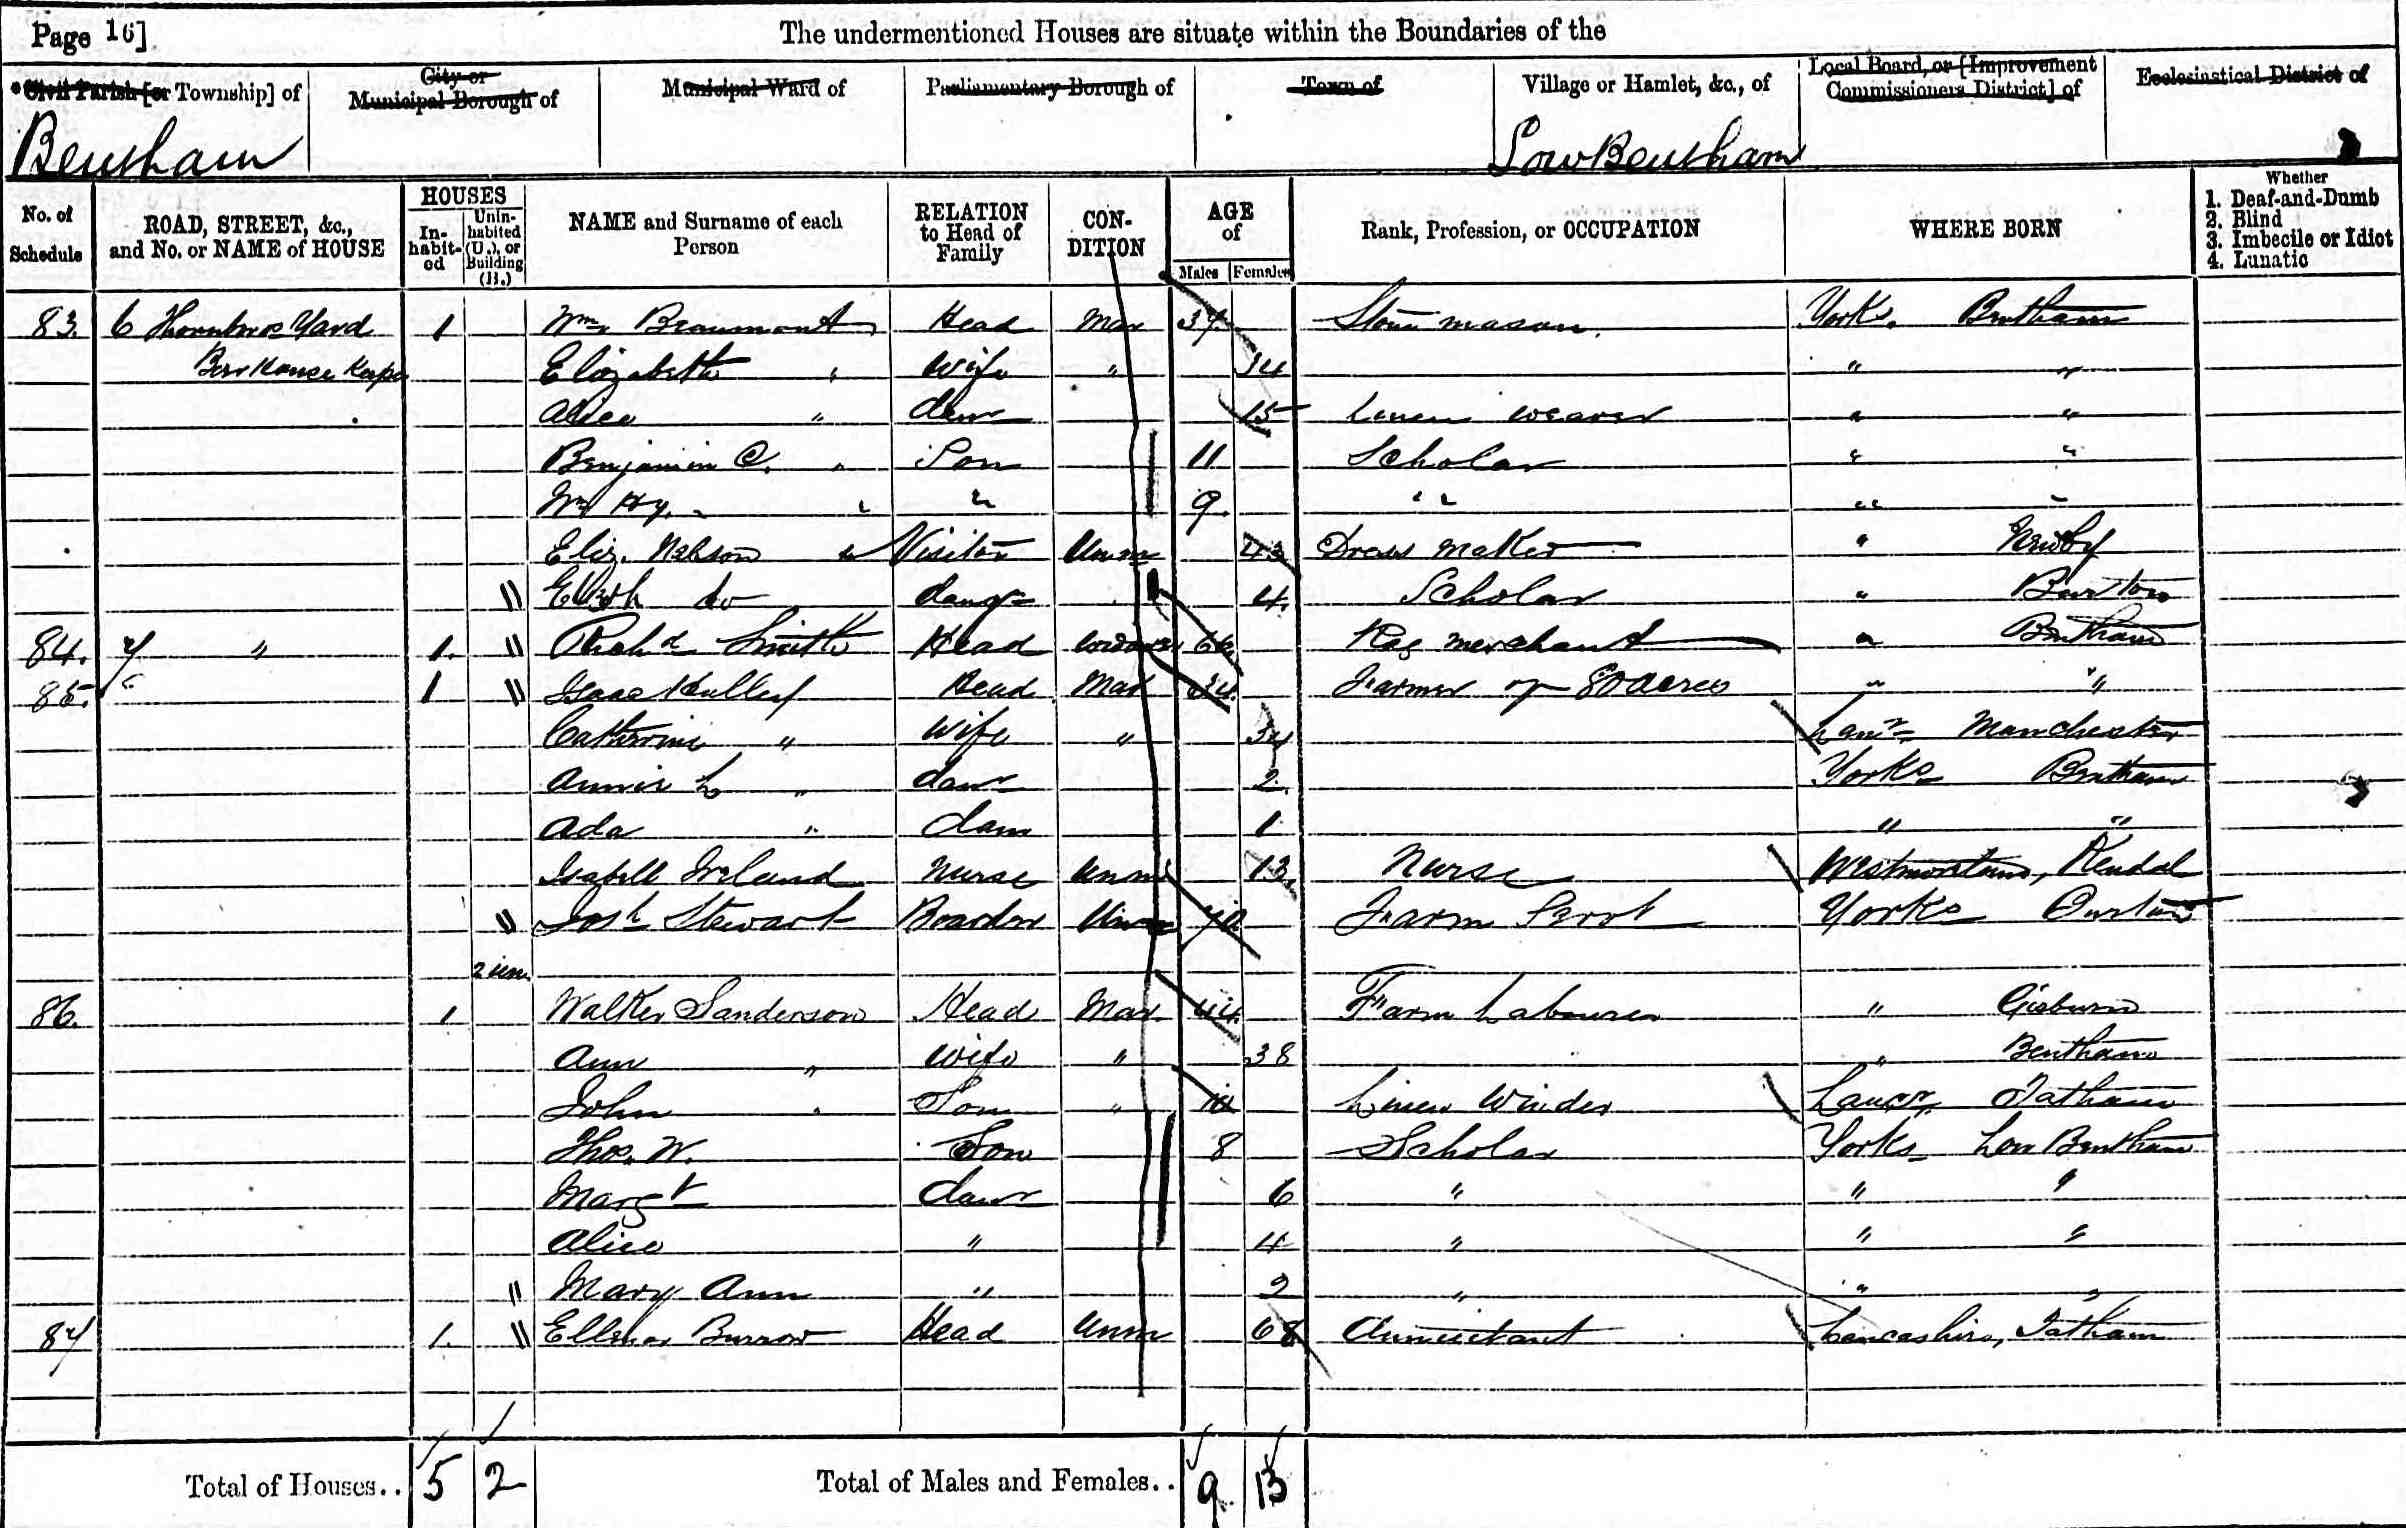 Page 16]
The undermentioned Houses are situate within the Boundaries of the
Civil Parish [or Township] of
City or Municipal Borough of
Municipal Ward of
Parliamentary Borough of
Town of
Village or Hamlet, &c., of
Local Board, or [Improvement Commissioners District] of
Ecclesiastical District of
Bentham
Low Bentham
No. of Schedule
ROAD, STREET, &c., and No. or NAME of HOUSE
HOUSES
Inhabited
Uninhabited (U.), or Building (B.)
NAME and Surname of each Person
RELATION to Head of Family
CONDITION
AGE of
Males
Females
Rank, Profession, or OCCUPATION
WHERE BORN
Whether
1. Deaf-and-Dumb
2. Blind
3. Imbecile or Idiot
4. Lunatic
83. 6 Yard 1 Wm. Beaumont Head Mar 37 Stone mason. Yorks. Bentham
Beer House Keeper Elizabeth " Wife " 34 " "
Alice " daur 15 Linen weaver " "
Benjamin C. " Son 11 Scholar " "
Wm Hy. " " 9 " " "
Eliz. Nelson Visitor Unm 43 Dress maker " Newby
Elizth do daugr 4 Scholar " Burton
84. 7 " 1. Richd Smith Head Widower Rag merchant " Bentham
85. " 1 Isaac Head Mar 34 Farmer of 80 acres " "
Catherine " Wife " 34 Lancr Manchester
Annie L " daur 2 Yorks Bentham
Ada " daur 1 " "
Isabell Ireland Nurse Unm 13 Nurse Westmorland, Kendal
Josh Stewart Boarder Unm Farm Servt Yorks
2 un.
86. 1 Walker Sanderson Head Mar. 44 Farm Labourer " Gisburn
Ann " Wife " 38 " Bentham
John " Son " Linen Winder Lancr, Tatham
Thos. W. Son 8 Scholar Yorks Low Bentham
Margt daur 6 " " "
Alice " 4 " " "
Mary Ann " 2 " " "
87 1. Ellenor Burrow Head Unm 68 Annuitant Lancashire, Tatham
Total of Houses.. 5 2 Total of Males and Females.. 9 13